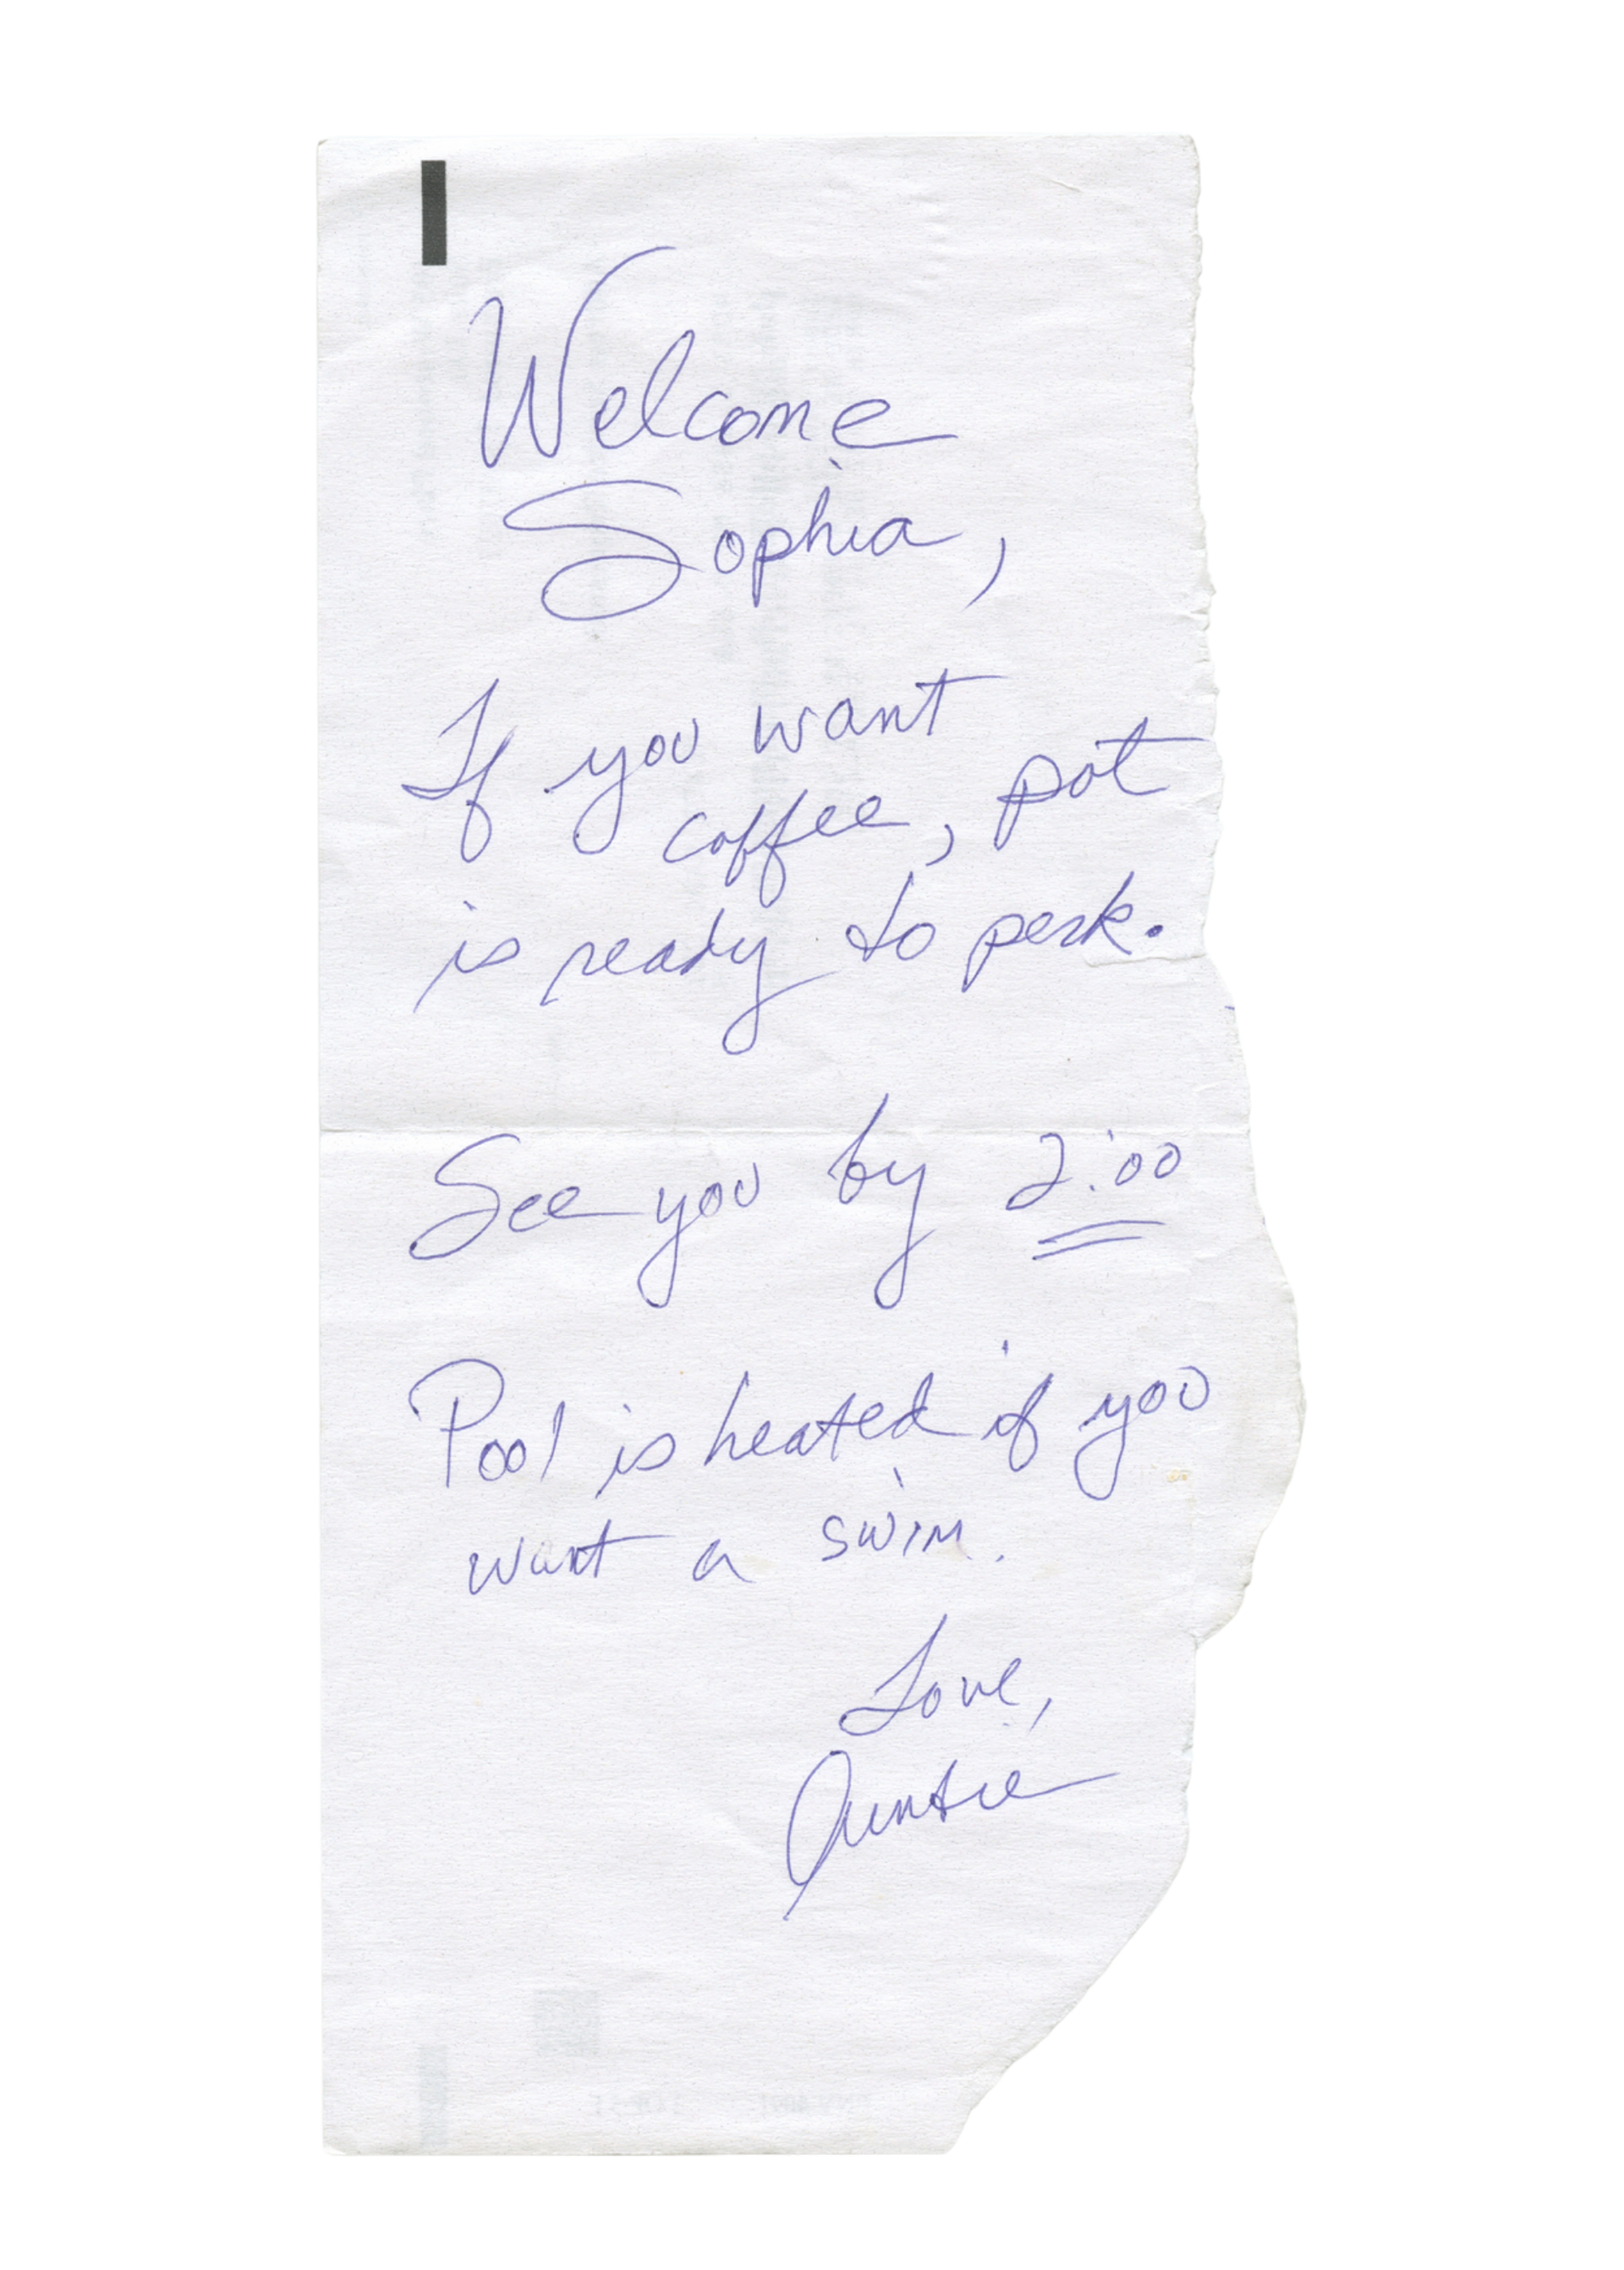 Welcome
Sophia,
If you want
coffee, pot
is ready to perk.
See you by 2:00
Pool is heated if you
want a swim.
Love,
Auntie